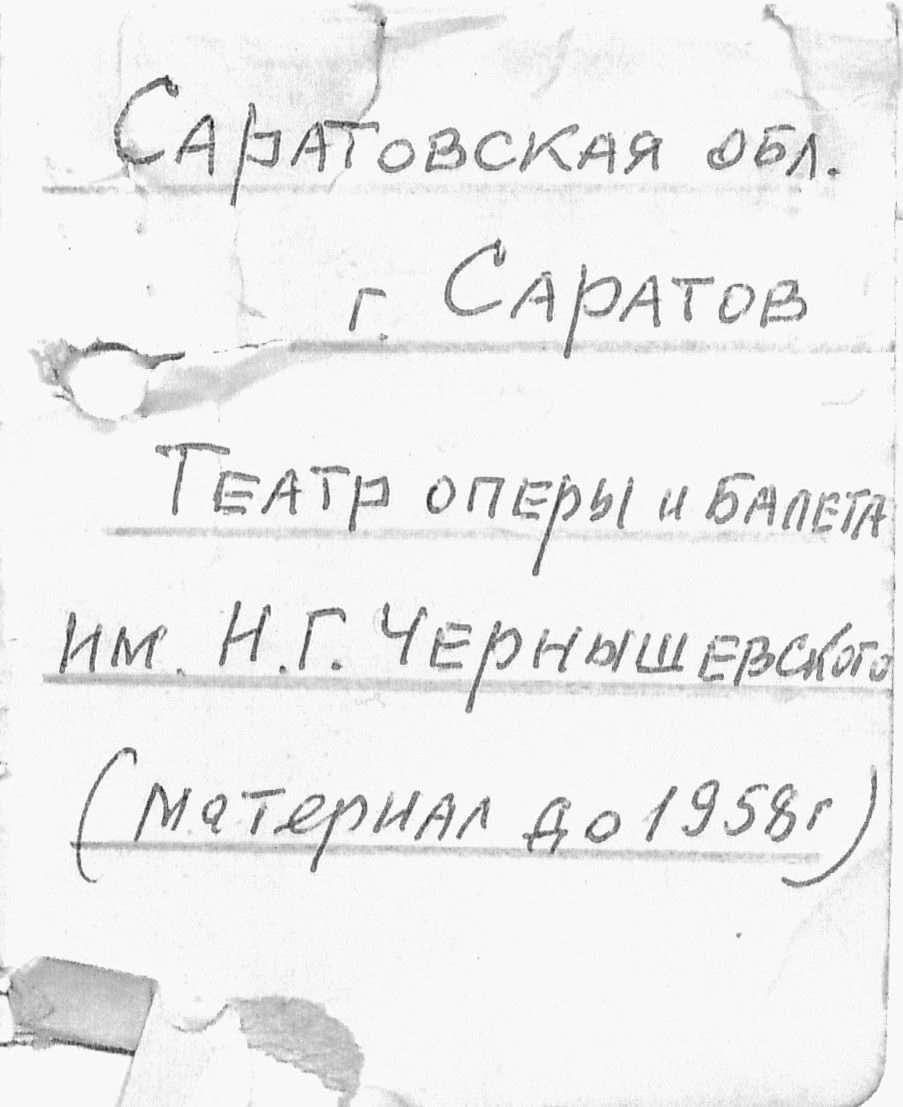 Саратовская обл.
г. Саратов
Театр оперы и балета
им. Н.Г. Чернышевского
(материал до 1958г)